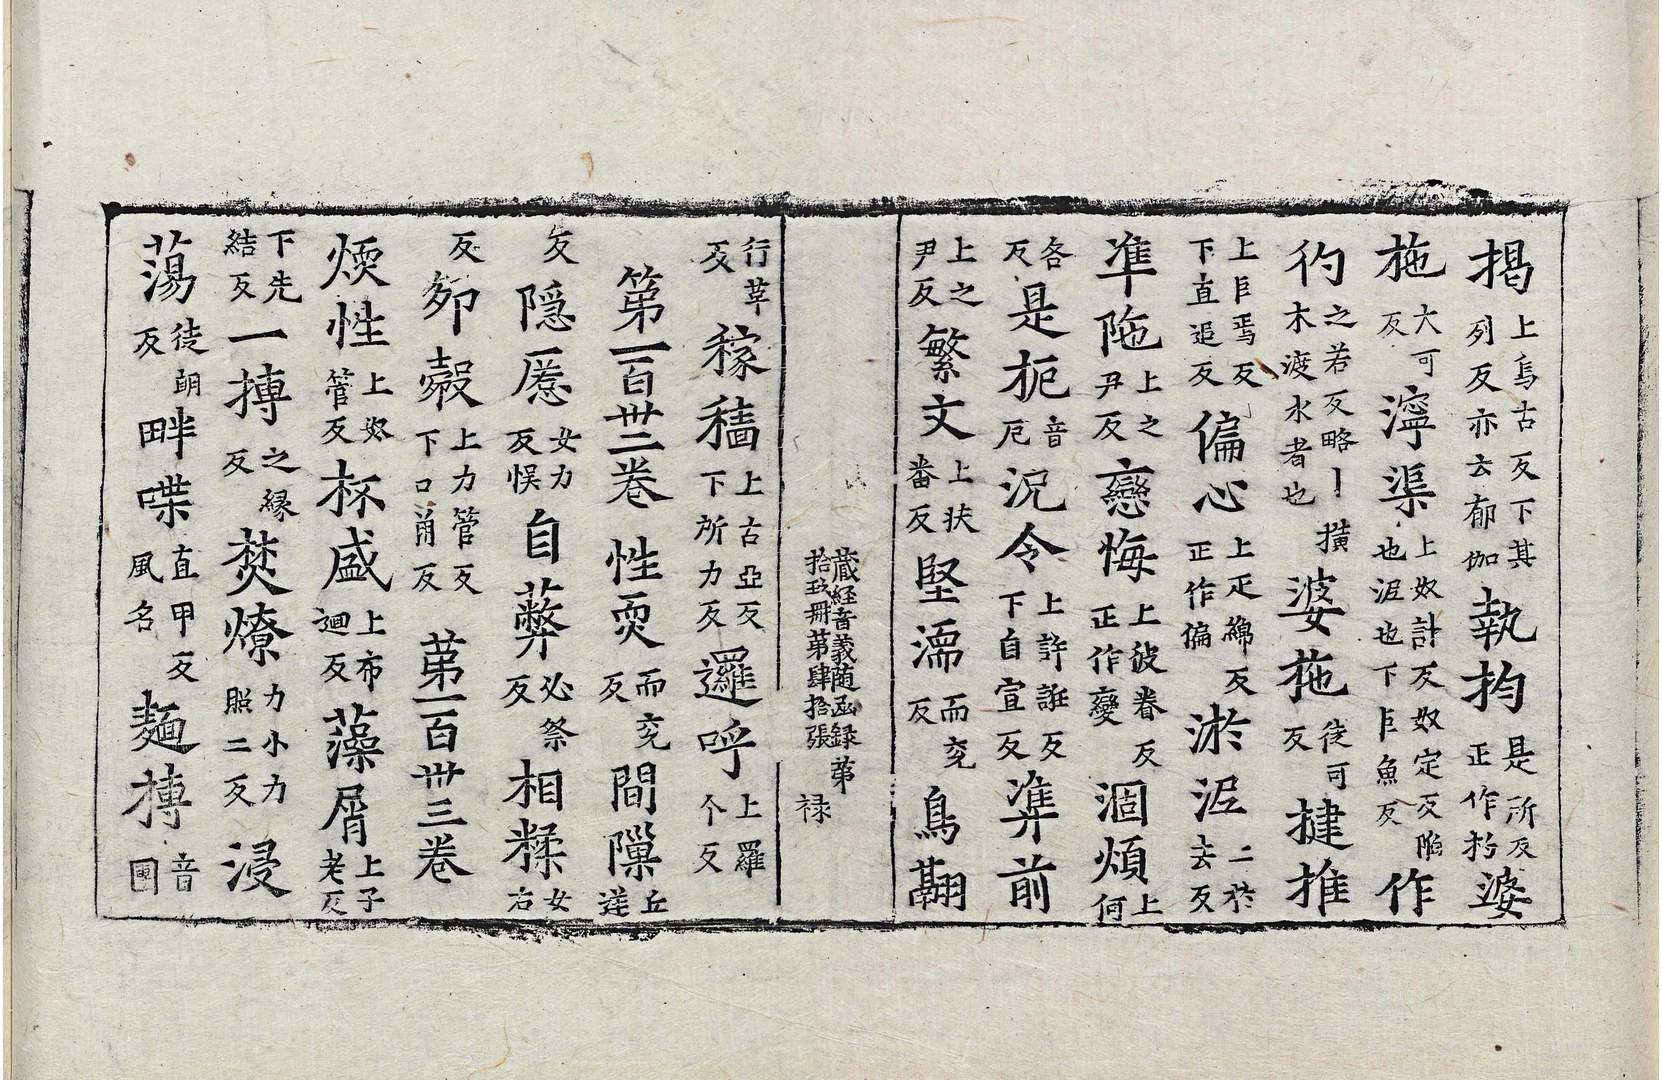 揭上烏古反下其列反亦云郁伽執扚是所反正作扚婆
拖大可反濘渠上奴計反奴定反陷也泥也下巨魚反作
彴之若反略丨橫木渡水者也婆拖徒可反揵推
上巨焉反下直追反偏心上疋綿反正作偏淤泥二於去反
準陁上之尹反戀悔上彼眷反正作變涸煩上何
各反是枙音厄況令上許誑反下自宣反準前
上之尹反繁文上扶番反堅濡而兖反鳥翮
藏經音義随函錄第拾玖冊第肆拾張 禄
行草反稼穡上古亞反下所力反邏呼上羅个反
第一百卅二卷 性耎而兖反間隟丘逆
反隱慝女力反悮自弊必祭反相糅女右
反夘㲉上力管反下口角反 第一百卅三卷
煗性上奴管反杯盛上布迴反藻屑上子老反
下先結反一摶之縁反焚燎力小力照二反浸
蕩徒朗反畔喋直甲反風名麺摶音團